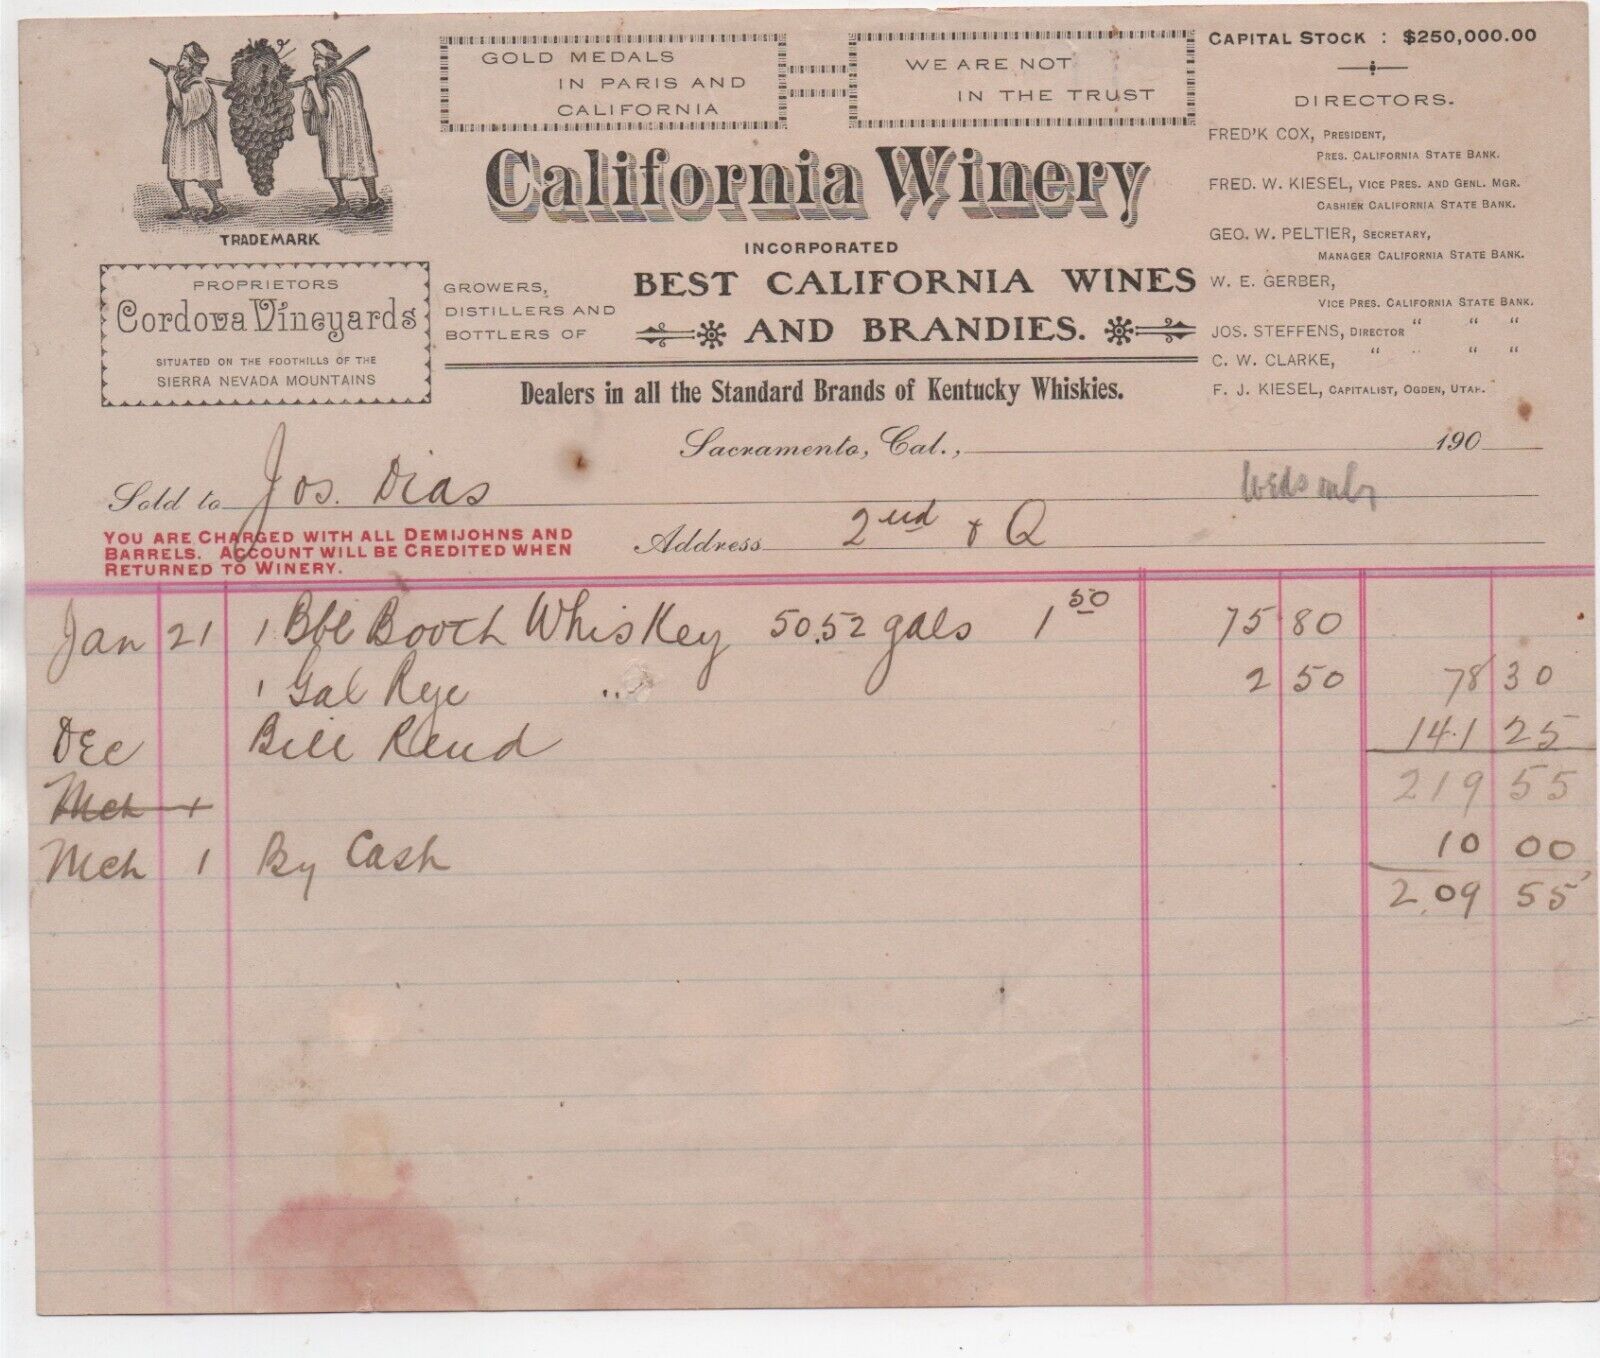 GOLD MEDALS
IN PARIS AND
CALIFORNIA
WE ARE NOT
IN THE TRUST
CAPITAL STOCK : $250,000.00
DIRECTORS.
FRED'K COX, PRESIDENT,
PRES. CALIFORNIA STATE BANK.
FRED. W. KIESEL, VICE PRES. AND GENL. MGR.
CASHIER CALIFORNIA STATE BANK.
GEO. W. PELTIER, SECRETARY,
MANAGER CALIFORNIA STATE BANK.
W. E. GERBER,
VICE PRES. CALIFORNIA STATE BANK.
JOS. STEFFENS, DIRECTOR " " "
C. W. CLARKE, " " " "
F. J. KIESEL, CAPITALIST, OGDEN, UTAH.
TRADEMARK
California Winery
INCORPORATED
PROPRIETORS
Cordova Vineyards
SITUATED ON THE FOOTHILLS OF THE
SIERRA NEVADA MOUNTAINS
GROWERS,
DISTILLERS AND
BOTTLERS OF
BEST CALIFORNIA WINES
AND BRANDIES.
Dealers in all the Standard Brands of Kentucky Whiskies.
Sacramento, Cal., 190
Sold to Jos. Dias
YOU ARE CHARGED WITH ALL DEMIJOHNS AND
BARRELS. ACCOUNT WILL BE CREDITED WHEN
RETURNED TO WINERY.
Address 2nd & Q
Jan 21 1 Bbl Booth Whiskey 50.52 gals 1 50 75 80
1 Gal Rye " 2 50 78 30
Dec Bill Rend 141 25
Mch 1 219 55
Mch 1 By Cash 10 00
209 55